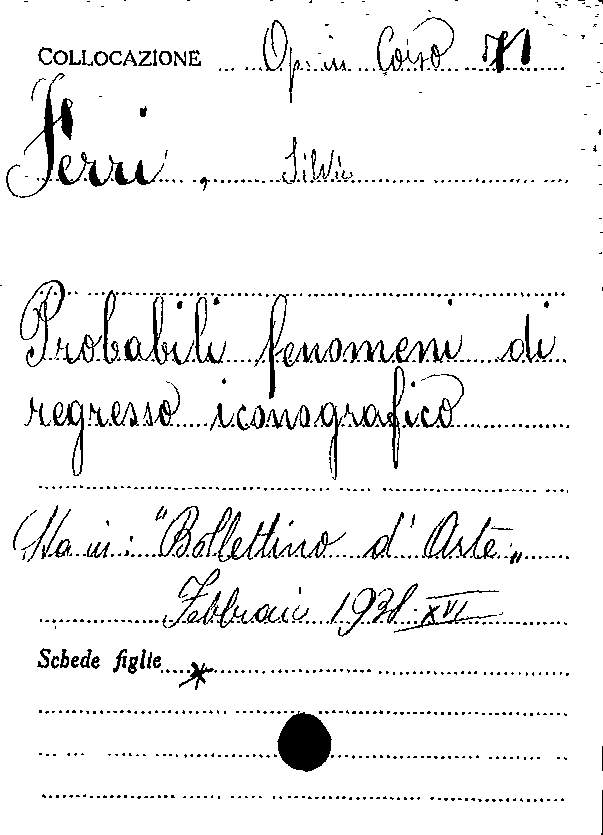 COLLOCAZIONE Op. in Corso 71
Ferri, Silvio
Probabili fenomeni di
regresso iconografico
Sta in: "Bollettino d'Arte"
Febbraio 1938-XVI
Schede figlie *